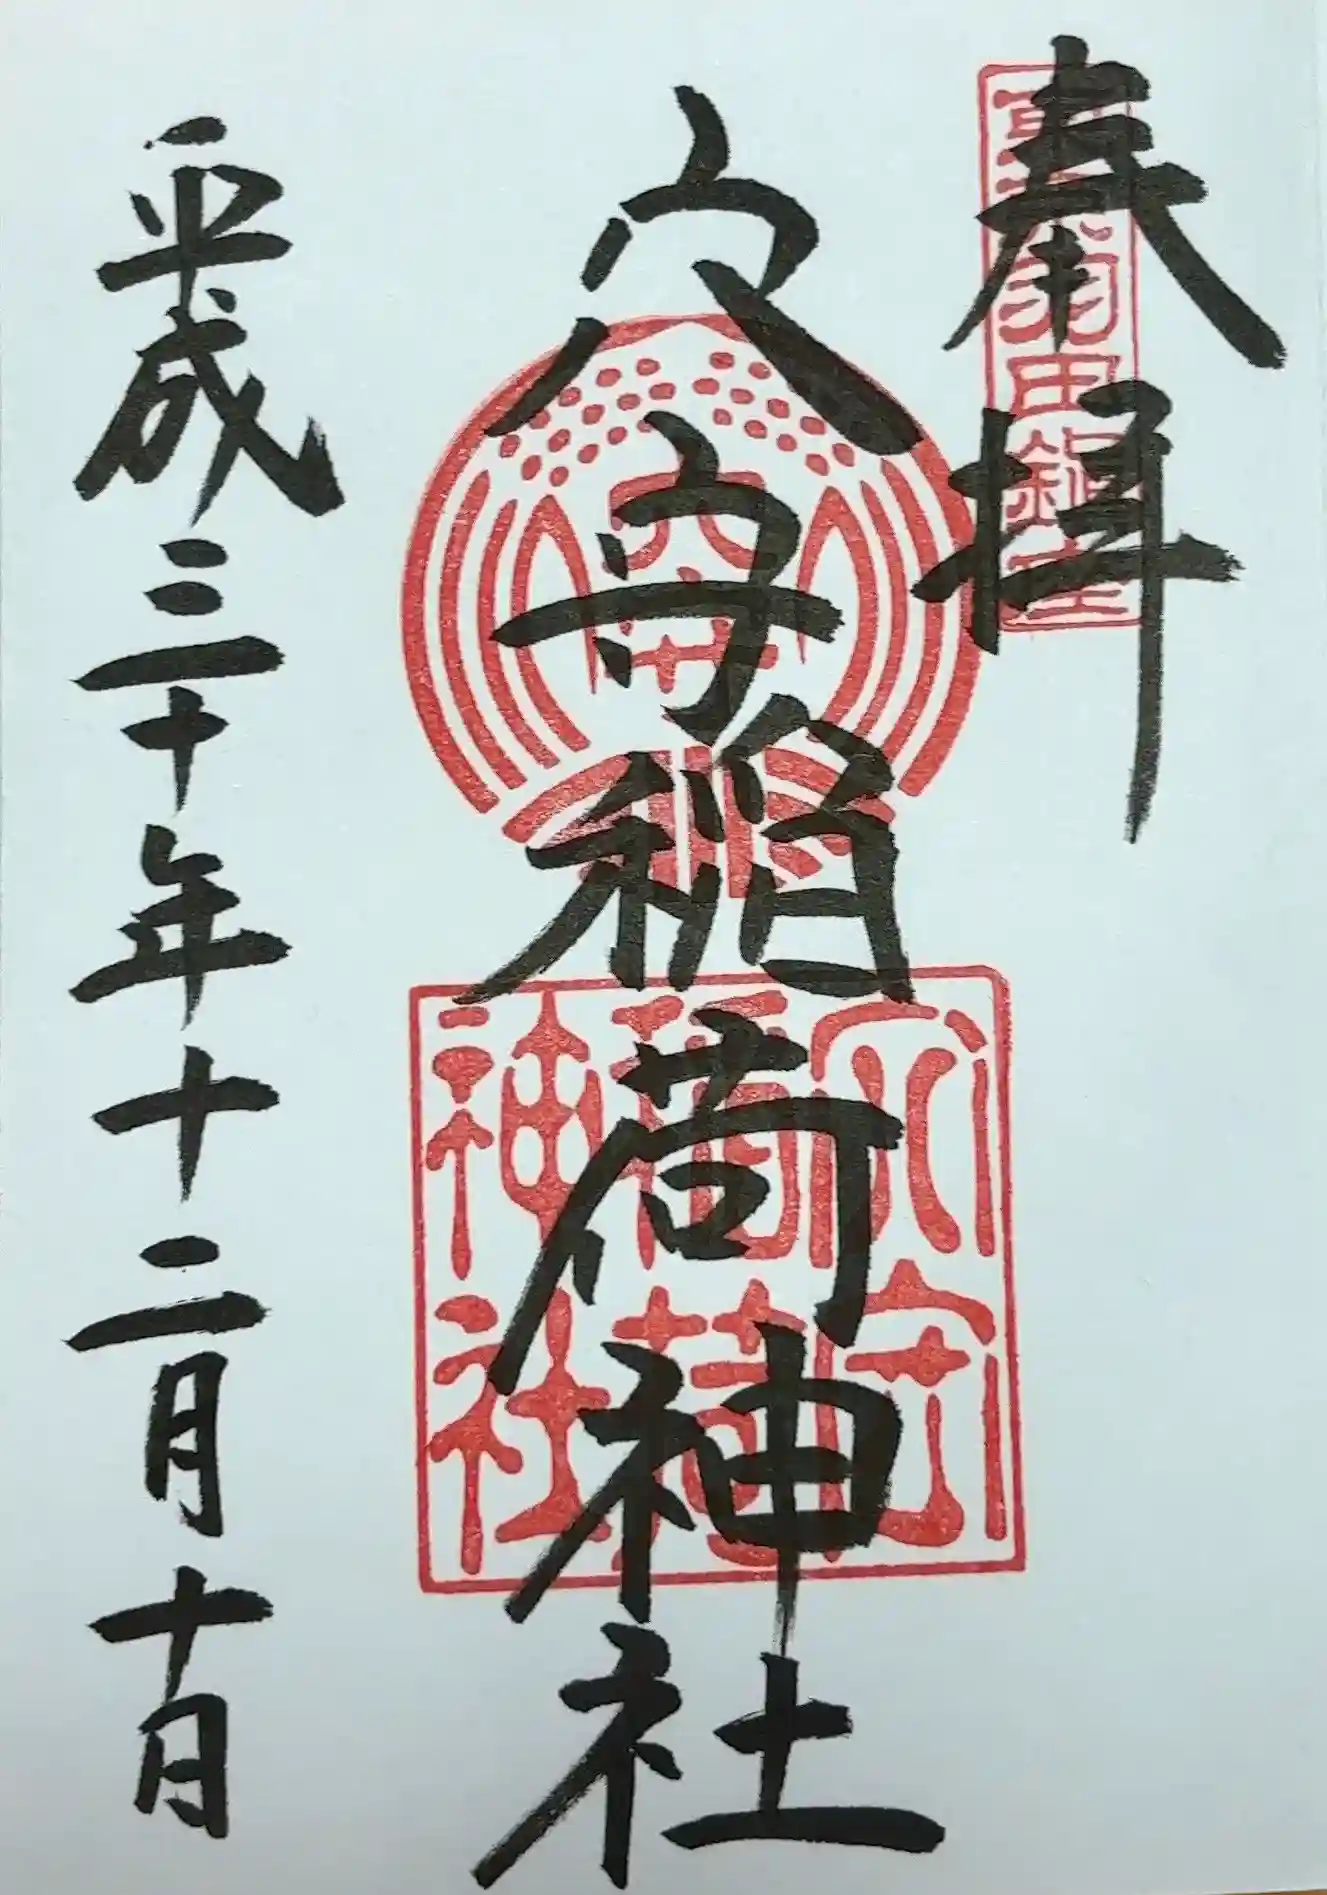 奉拝
東京羽田鎮座
穴守稲荷神社
穴守
穴守
稲荷
神社
平成三十年十二月十日